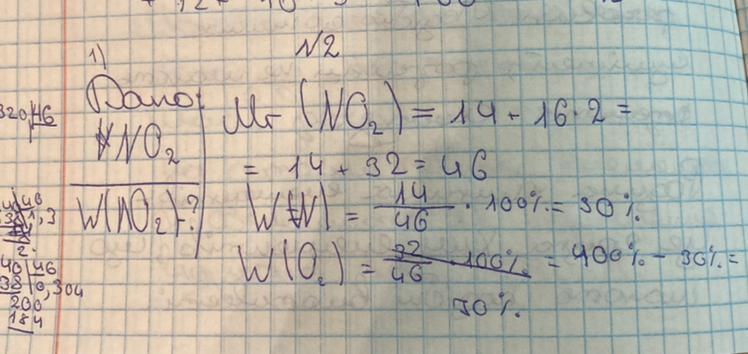 N2
1)
Дано:
NO₂
W(NO₂)-?
Mr (NO₂) = 14 + 16·2 =
= 14 + 32 = 46
W(N) = 14/46 · 100% = 30%
W(O₂) = 32/46 · 100% = 100% - 30% =
70%
320,46
40|46
0,304
200
184